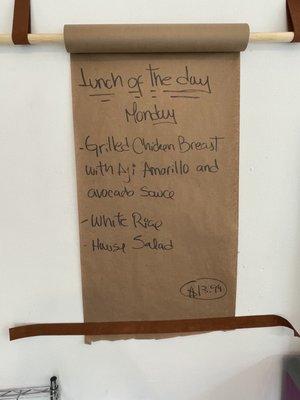 Lunch of the day
Monday
- Grilled Chicken Breast
with Aji Amarillo and
avocado sauce
- White Rice
- House Salad
$13.99